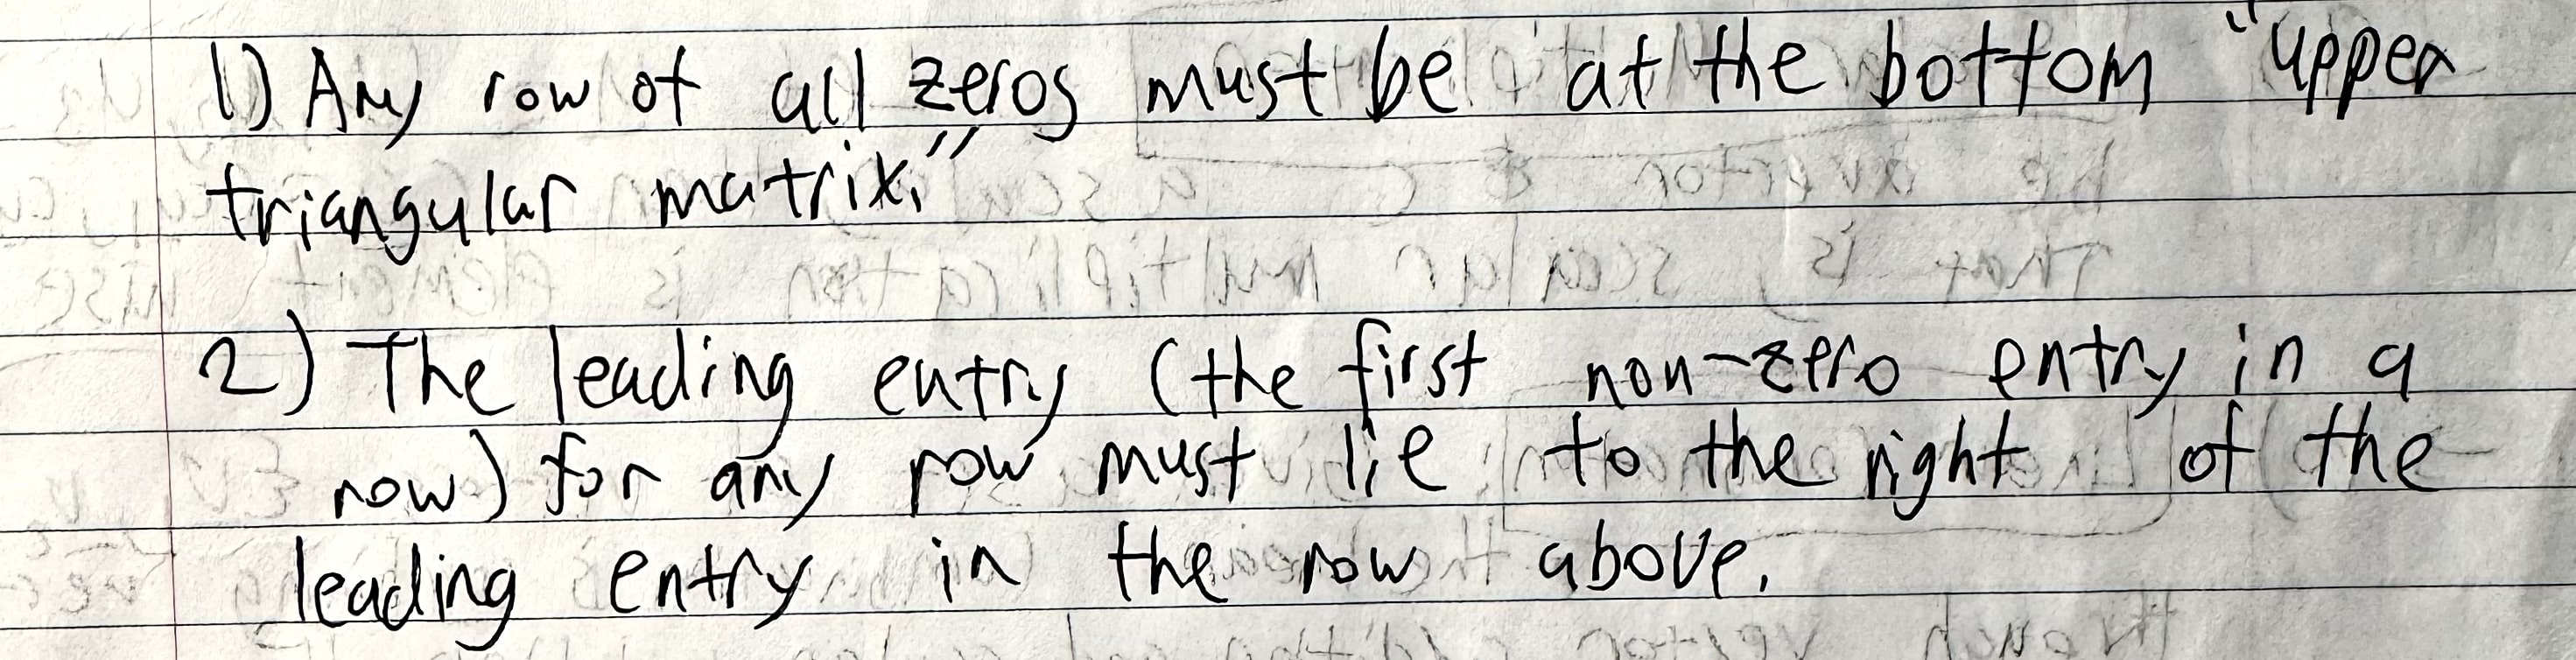 1) Any row of all zeros must be at the bottom "upper
triangular matrix."
2) The leading entry (the first non-zero entry in a
row) for any row must lie to the right of the
leading entry in the row above.